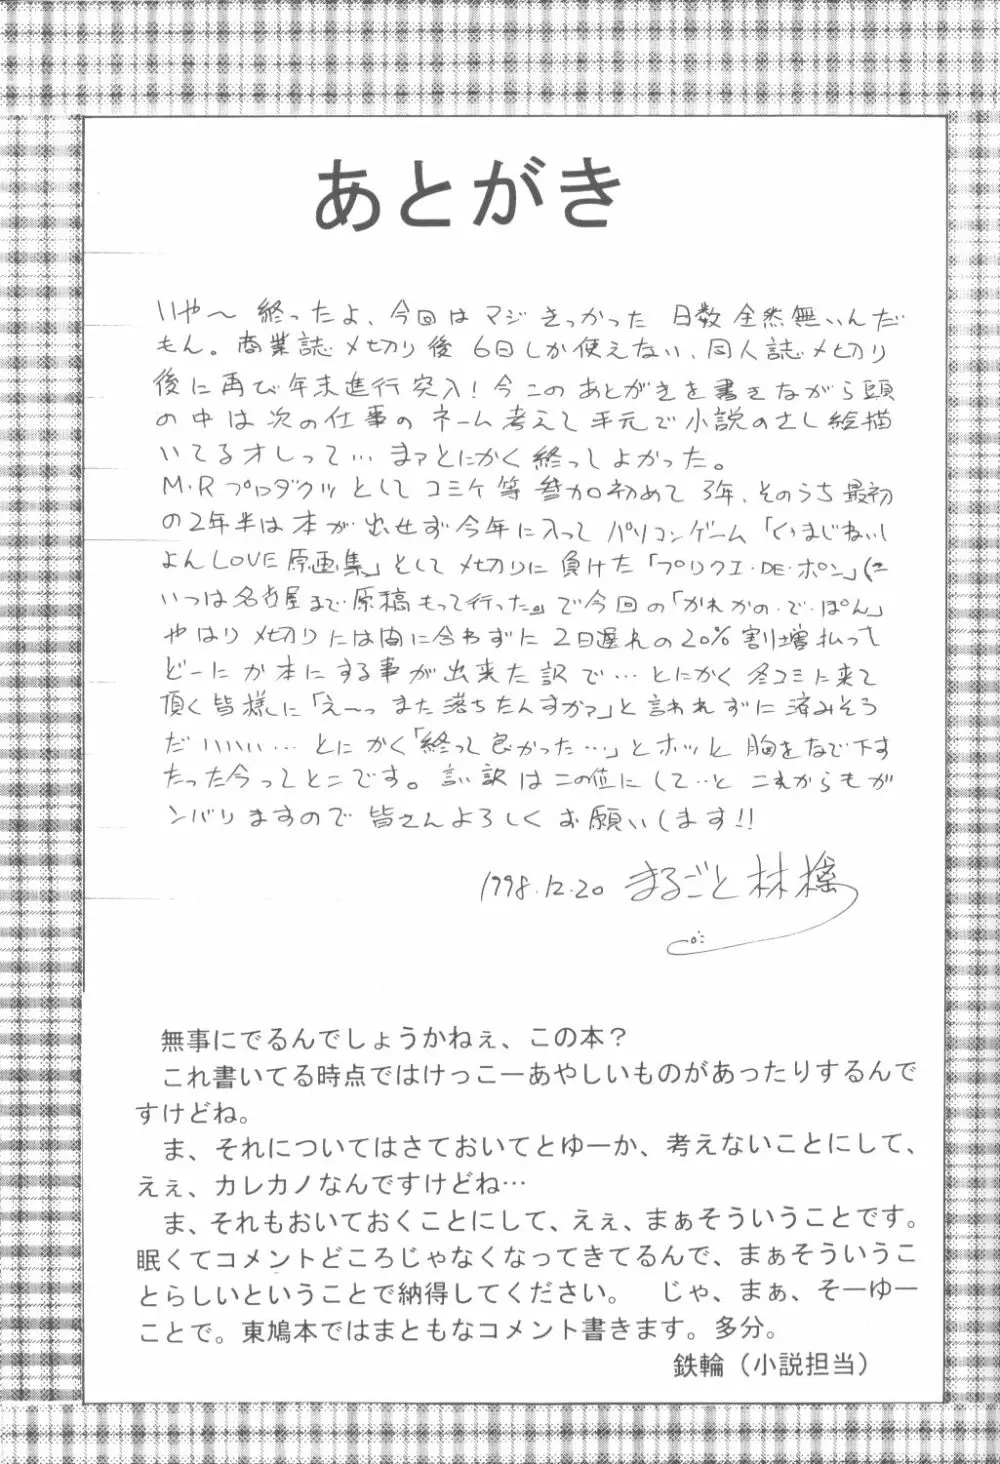 あとがき
いや〜 終ったよ、今回は マジ きっかった 日数 全然無いんだ
もん。商業誌〆切り後 6日しか使えない、同人誌〆切り
後に再び年末進行突入!今このあとがきを書きながら頭
の中は次の仕事のネーム考えて手元で小説のさし絵描
いてるオレって… まァとにかく終ってよかった。
M・Rプロダクツとしてコミケ等参加初めて3年、そのうち最初
の2年半は本が出せず今年に入ってパソコンゲーム「いまじねいし
よんLOVE原画集」として〆切りに負けた「プリクエ・DE・ポン」(こ
いつは名古屋まで原稿もって行った。)で今回の「かれかの・で・ぽん」
やはり〆切りには間に合わずに2日遅れの20%割増払って
どーにか本にする事が出来た訳で… とにかく冬コミに来て
頂く皆様に「え〜っ また落ちたんすかァ」と言われずに済みそう
だ いいい… とにかく「終って良かった…」とホッと胸をなで下す
たった今ってとこです。言い訳はこの位にして…と これからもガ
ンバリますので皆さんよろしくお願いします!!
1998.12.20 まるごと林檎
無事にでるんでしょうかねぇ、この本?
これ書いてる時点ではけっこーあやしいものがあったりするんで
すけどね。
ま、それについてはさておいてとゆーか、考えないことにして、
えぇ、カレカノなんですけどね…
ま、それもおいておくことにして、えぇ、まぁそういうことです。
眠くてコメントどころじゃなくなってきてるんで、まぁそういうこ
とらしいということで納得してください。 じゃ、まぁ、そーゆー
ことで。東鳩本ではまともなコメント書きます。多分。
鉄輪(小説担当)